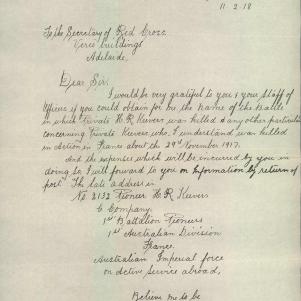 11.2.18
To the Secretary of Red Cross
Verco buildings
Adelaide.
Dear Sir.
I would be very grateful to you & your Staff of
Officers if you could obtain for me, the Name of the Battle
in which Private H R Kuvers, was killed & any other particulars
concerning Private Kuvers, who, I understand was killed
in action in France about the 29th November 1917.
And the expenses which will be incurred by you in
doing so I will forward to you on Information by return of
post. The late address in
No 2132 Pioneer H R Kuvers
C Company.
1st Battalion Pioneers
1st Australian Division
France.
Australian Imperial force
on active service abroad,
Believe me to be